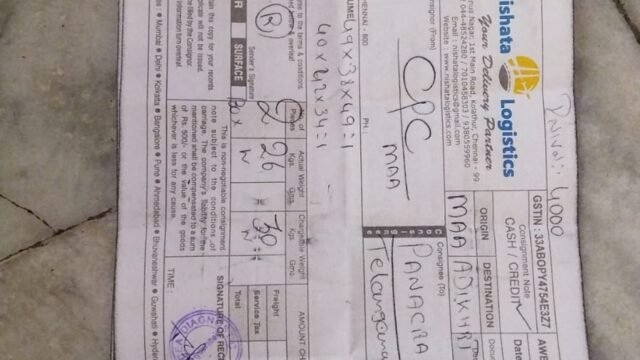 Invol: 4000
nishata
Logistics
Your Delivery Partner
Venus Nagar, 1st Main Road, Korathur, Chennai - 99
044-48524280 / 7010458503 / 9380559960
Email : nishatalogistics@gmail.com
Website : www.nishatalogistics.com
GSTIN : 33ABOPY4754E3Z7
Consignment Note
CASH / CREDIT
AW
Date
ORIGIN
DESTINATION
MAA
ADIKHRI
Consignor (From)
Consignee (To)
CPC
MAA
PANACEA
Telangana
CHENNAI - 600
PH :
49x38x49=1
40x42x34=1
to the terms & conditions
& overleaf
Sender's Signature
R
tain this copy for your records
plicate will not be issued.
be filled by the Consignor.
information turn overleaf.
SURFACE
No. of
Pieces
2
Actual Weight
Kgs. Gms.
26
Chargeable Weight
Kgs. Gms.
30
AMOUNT CH
Freight
Service Tax
Total
This is non-negotiable consignment
note subject to the conditions of
carriage. The company's liability for the
mentioned shall be compensated to a sum
of Rs. 500/- or the value of the goods
whichever is less for any cause.
SIGNATURE OF REC
TIME :
DIAGN
Mumbai ● Delhi ● Kolkatta ● Bangalore ● Pune ● Ahmedabad ● Bhuvaneshwar ● Guwahati ● Hyder